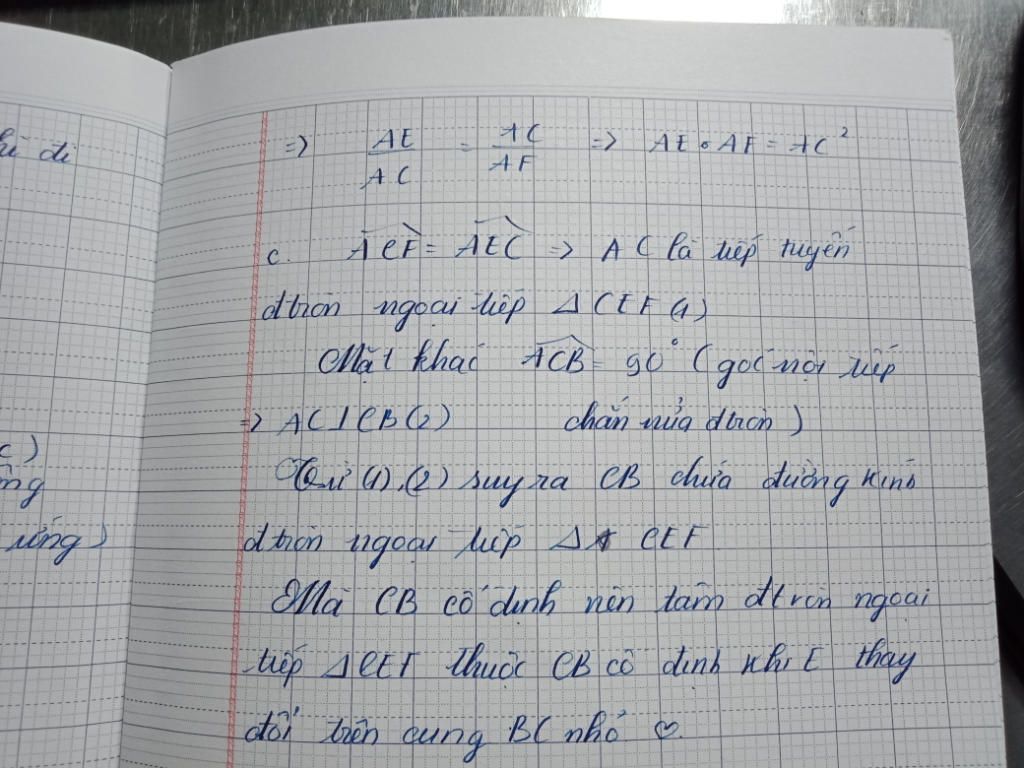 => AE/AC = AC/AF => AE.AF = AC²
c. ACF = AEC => AC là tiếp tuyến
đtròn ngoại tiếp Δ CEF (1)
Mặt khác ACB = 90° (góc nội tiếp
=> AC ⊥ CB (2) chắn nửa đtròn)
Từ (1), (2) suy ra CB chứa đường kính
đtròn ngoại tiếp Δ CEF
Mà CB cố định nên tâm đtròn ngoại
tiếp ΔCEF thuộc CB cố định khi E thay
đổi trên cung BC nhỏ ♡
đi
c)
ứng)